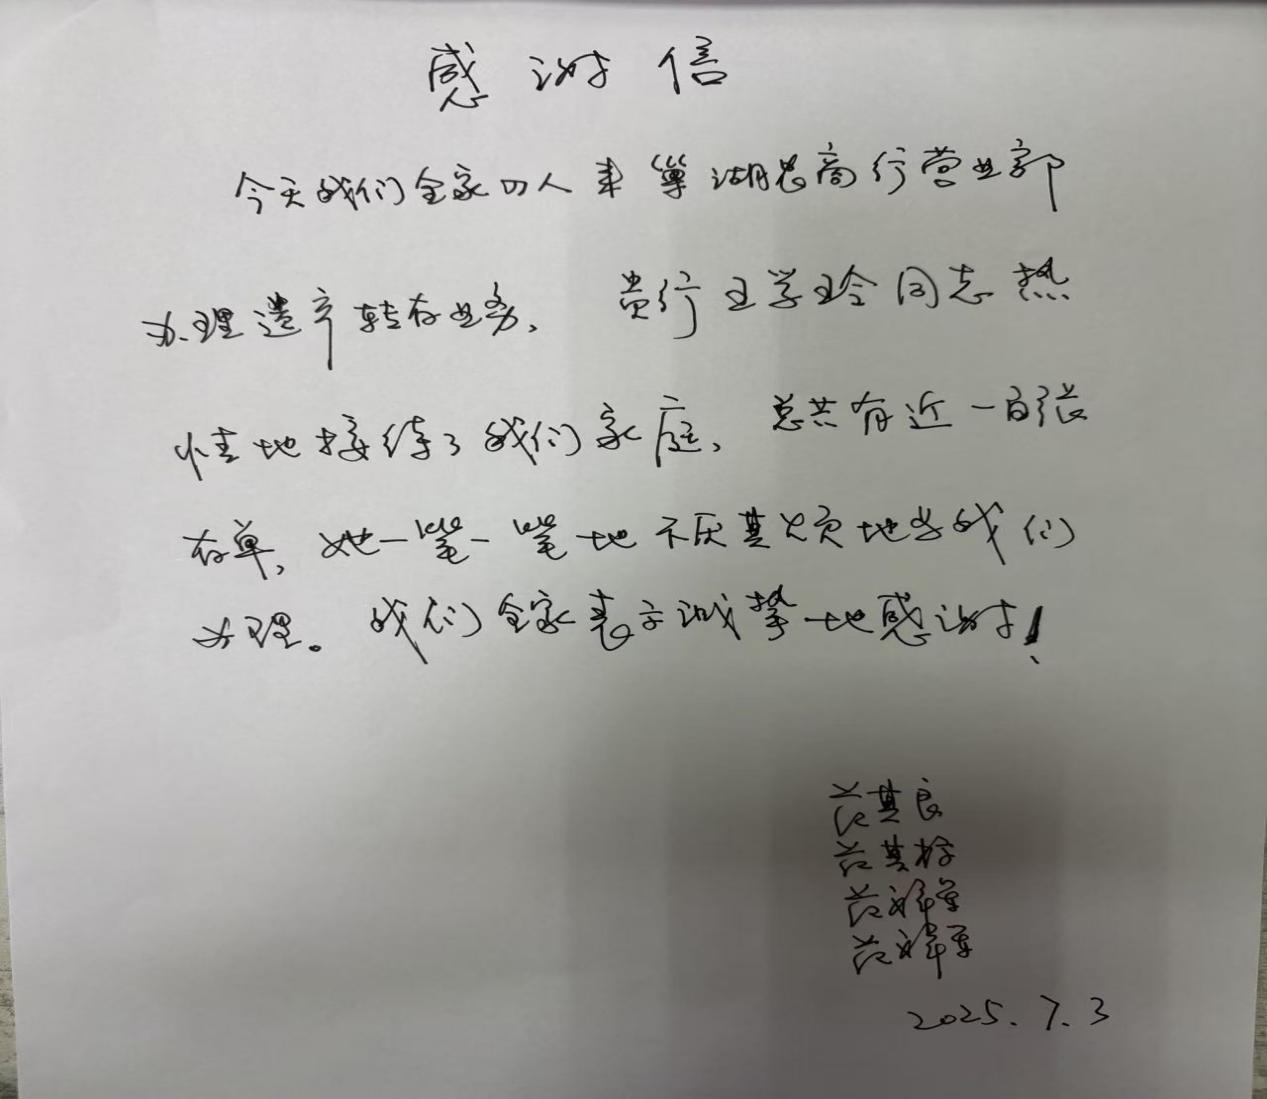 感谢信
今天我们全家四人来巢湖农商行营业部
办理遗产转存业务, 贵行王学玲同志热
情地接待了我们家庭, 总共有近一百张
存单, 她一笔一笔地不厌其烦地为我们
办理。我们全家表示诚挚地感谢!
范其良
范其
范
范
2025.7.3